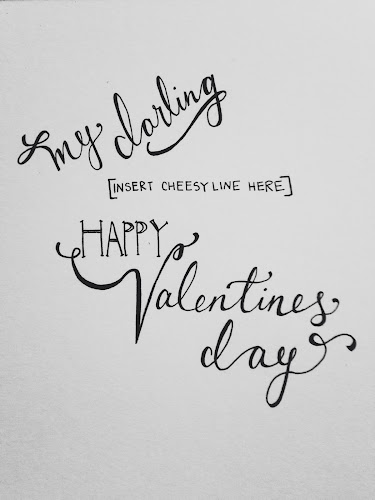 my darling
[INSERT CHEESY LINE HERE]
HAPPY
Valentines
day